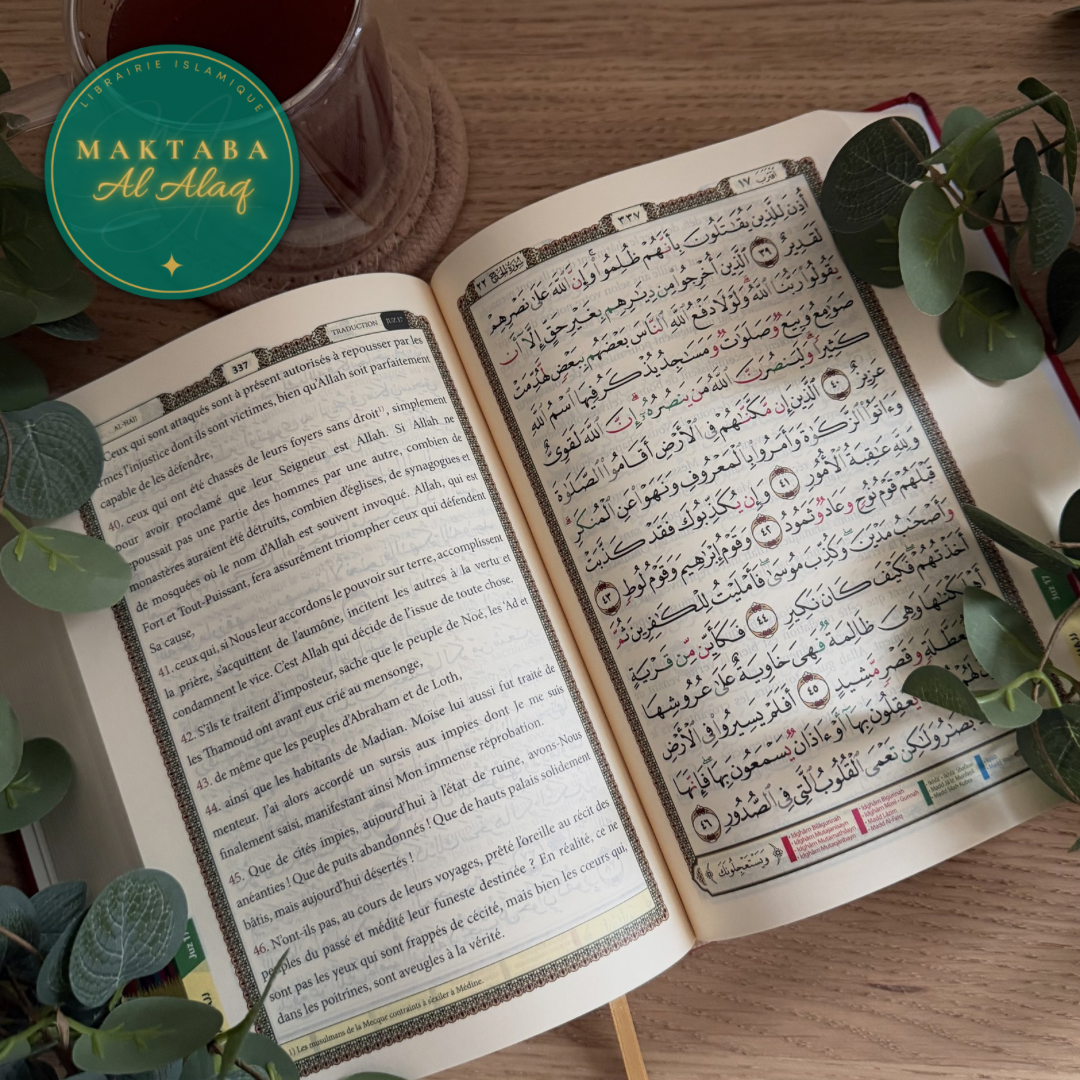 LIBRAIRIE ISLAMIQUE
MAKTABA
Al Alaq
AL-HAJJ
337
TRADUCTION
JUZ 17
Ceux qui sont attaqués sont à présent autorisés à repousser par les
armes l'injustice dont ils sont victimes, bien qu'Allah soit parfaitement
capable de les défendre,
40. ceux qui ont été chassés de leurs foyers sans droit¹, simplement
pour avoir proclamé que leur Seigneur est Allah. Si Allah ne
repoussait pas une partie des hommes par une autre, combien de
monastères auraient été détruits, combien d'églises, de synagogues et
de mosquées où le nom d'Allah est souvent invoqué. Allah, qui est
Fort et Tout-Puissant, fera assurément triompher ceux qui défendent
Sa cause,
41. ceux qui, si Nous leur accordons le pouvoir sur terre, accomplissent
la prière, s'acquittent de l'aumône, incitent les autres à la vertu et
condamnent le vice. C'est Allah qui décide de l'issue de toute chose.
42. S'ils te traitent d'imposteur, sache que le peuple de Noé, les 'Ad et
les Thamoûd ont avant eux crié au mensonge,
43. de même que les peuples d'Abraham et de Loth,
44. ainsi que les habitants de Madian. Moïse lui aussi fut traité de
menteur. J'ai alors accordé un sursis aux impies dont je me suis
finalement saisi, manifestant ainsi Mon immense réprobation.
45. Que de cités impies, aujourd'hui à l'état de ruine, avons-Nous
anéanties ! Que de puits abandonnés ! Que de hauts palais solidement
bâtis, mais aujourd'hui désertés !
46. N'ont-ils pas, au cours de leurs voyages, prêté l'oreille au récit des
peuples du passé et médité leur funeste destinée ? En réalité, ce ne
sont pas les yeux qui sont frappés de cécité, mais bien les cœurs qui,
dans les poitrines, sont aveugles à la vérité.
(1) Les musulmans de la Mecque contraints à s'exiler à Médine.
Juz 17
٢٢ سُورَةُ الحَجِّ
٣٣٧
اقْتَرَبَ ١٧
أُذِنَ لِلَّذِينَ يُقَٰتَلُونَ بِأَنَّهُمْ ظُلِمُوا۟ ۚ وَإِنَّ ٱللَّهَ عَلَىٰ نَصْرِهِمْ
لَقَدِيرٌ ٣٩ ٱلَّذِينَ أُخْرِجُوا۟ مِن دِيَٰرِهِم بِغَيْرِ حَقٍّ إِلَّآ أَن
يَقُولُوا۟ رَبُّنَا ٱللَّهُ ۗ وَلَوْلَا دَفْعُ ٱللَّهِ ٱلنَّاسَ بَعْضَهُم بِبَعْضٍ لَّهُدِّمَتْ
صَوَٰمِعُ وَبِيَعٌ وَصَلَوَٰتٌ وَمَسَٰجِدُ يُذْكَرُ فِيهَا ٱسْمُ ٱللَّهِ
كَثِيرًا ۗ وَلَيَنصُرَنَّ ٱللَّهُ مَن يَنصُرُهُۥٓ ۗ إِنَّ ٱللَّهَ لَقَوِىٌّ
عَزِيزٌ ٤٠ ٱلَّذِينَ إِن مَّكَّنَّٰهُمْ فِى ٱلْأَرْضِ أَقَامُوا۟ ٱلصَّلَوٰةَ
وَءَاتَوُا۟ ٱلزَّكَوٰةَ وَأَمَرُوا۟ بِٱلْمَعْرُوفِ وَنَهَوْا۟ عَنِ ٱلْمُنكَرِ ۗ
وَلِلَّهِ عَٰقِبَةُ ٱلْأُمُورِ ٤١ وَإِن يُكَذِّبُوكَ فَقَدْ كَذَّبَتْ
قَبْلَهُمْ قَوْمُ نُوحٍ وَعَادٌ وَثَمُودُ ٤٢ وَقَوْمُ إِبْرَٰهِيمَ وَقَوْمُ لُوطٍ ٤٣
وَأَصْحَٰبُ مَدْيَنَ ۖ وَكُذِّبَ مُوسَىٰ فَأَمْلَيْتُ لِلْكَٰفِرِينَ ثُمَّ
أَخَذْتُهُمْ ۖ فَكَيْفَ كَانَ نَكِيرِ ٤٤ فَكَأَيِّن مِّن قَرْيَةٍ
أَهْلَكْنَٰهَا وَهِىَ ظَالِمَةٌ فَهِىَ خَاوِيَةٌ عَلَىٰ عُرُوشِهَا
مُّعَطَّلَةٍ وَقَصْرٍ مَّشِيدٍ ٤٥ أَفَلَمْ يَسِيرُوا۟ فِى ٱلْأَرْضِ
يَعْقِلُونَ بِهَآ أَوْ ءَاذَانٌ يَسْمَعُونَ بِهَا ۖ فَإِنَّهَا
وَلَٰكِن تَعْمَى ٱلْقُلُوبُ ٱلَّتِى فِى ٱلصُّدُورِ ٤٦
وَيَسْتَعْجِلُونَكَ
Juz 17